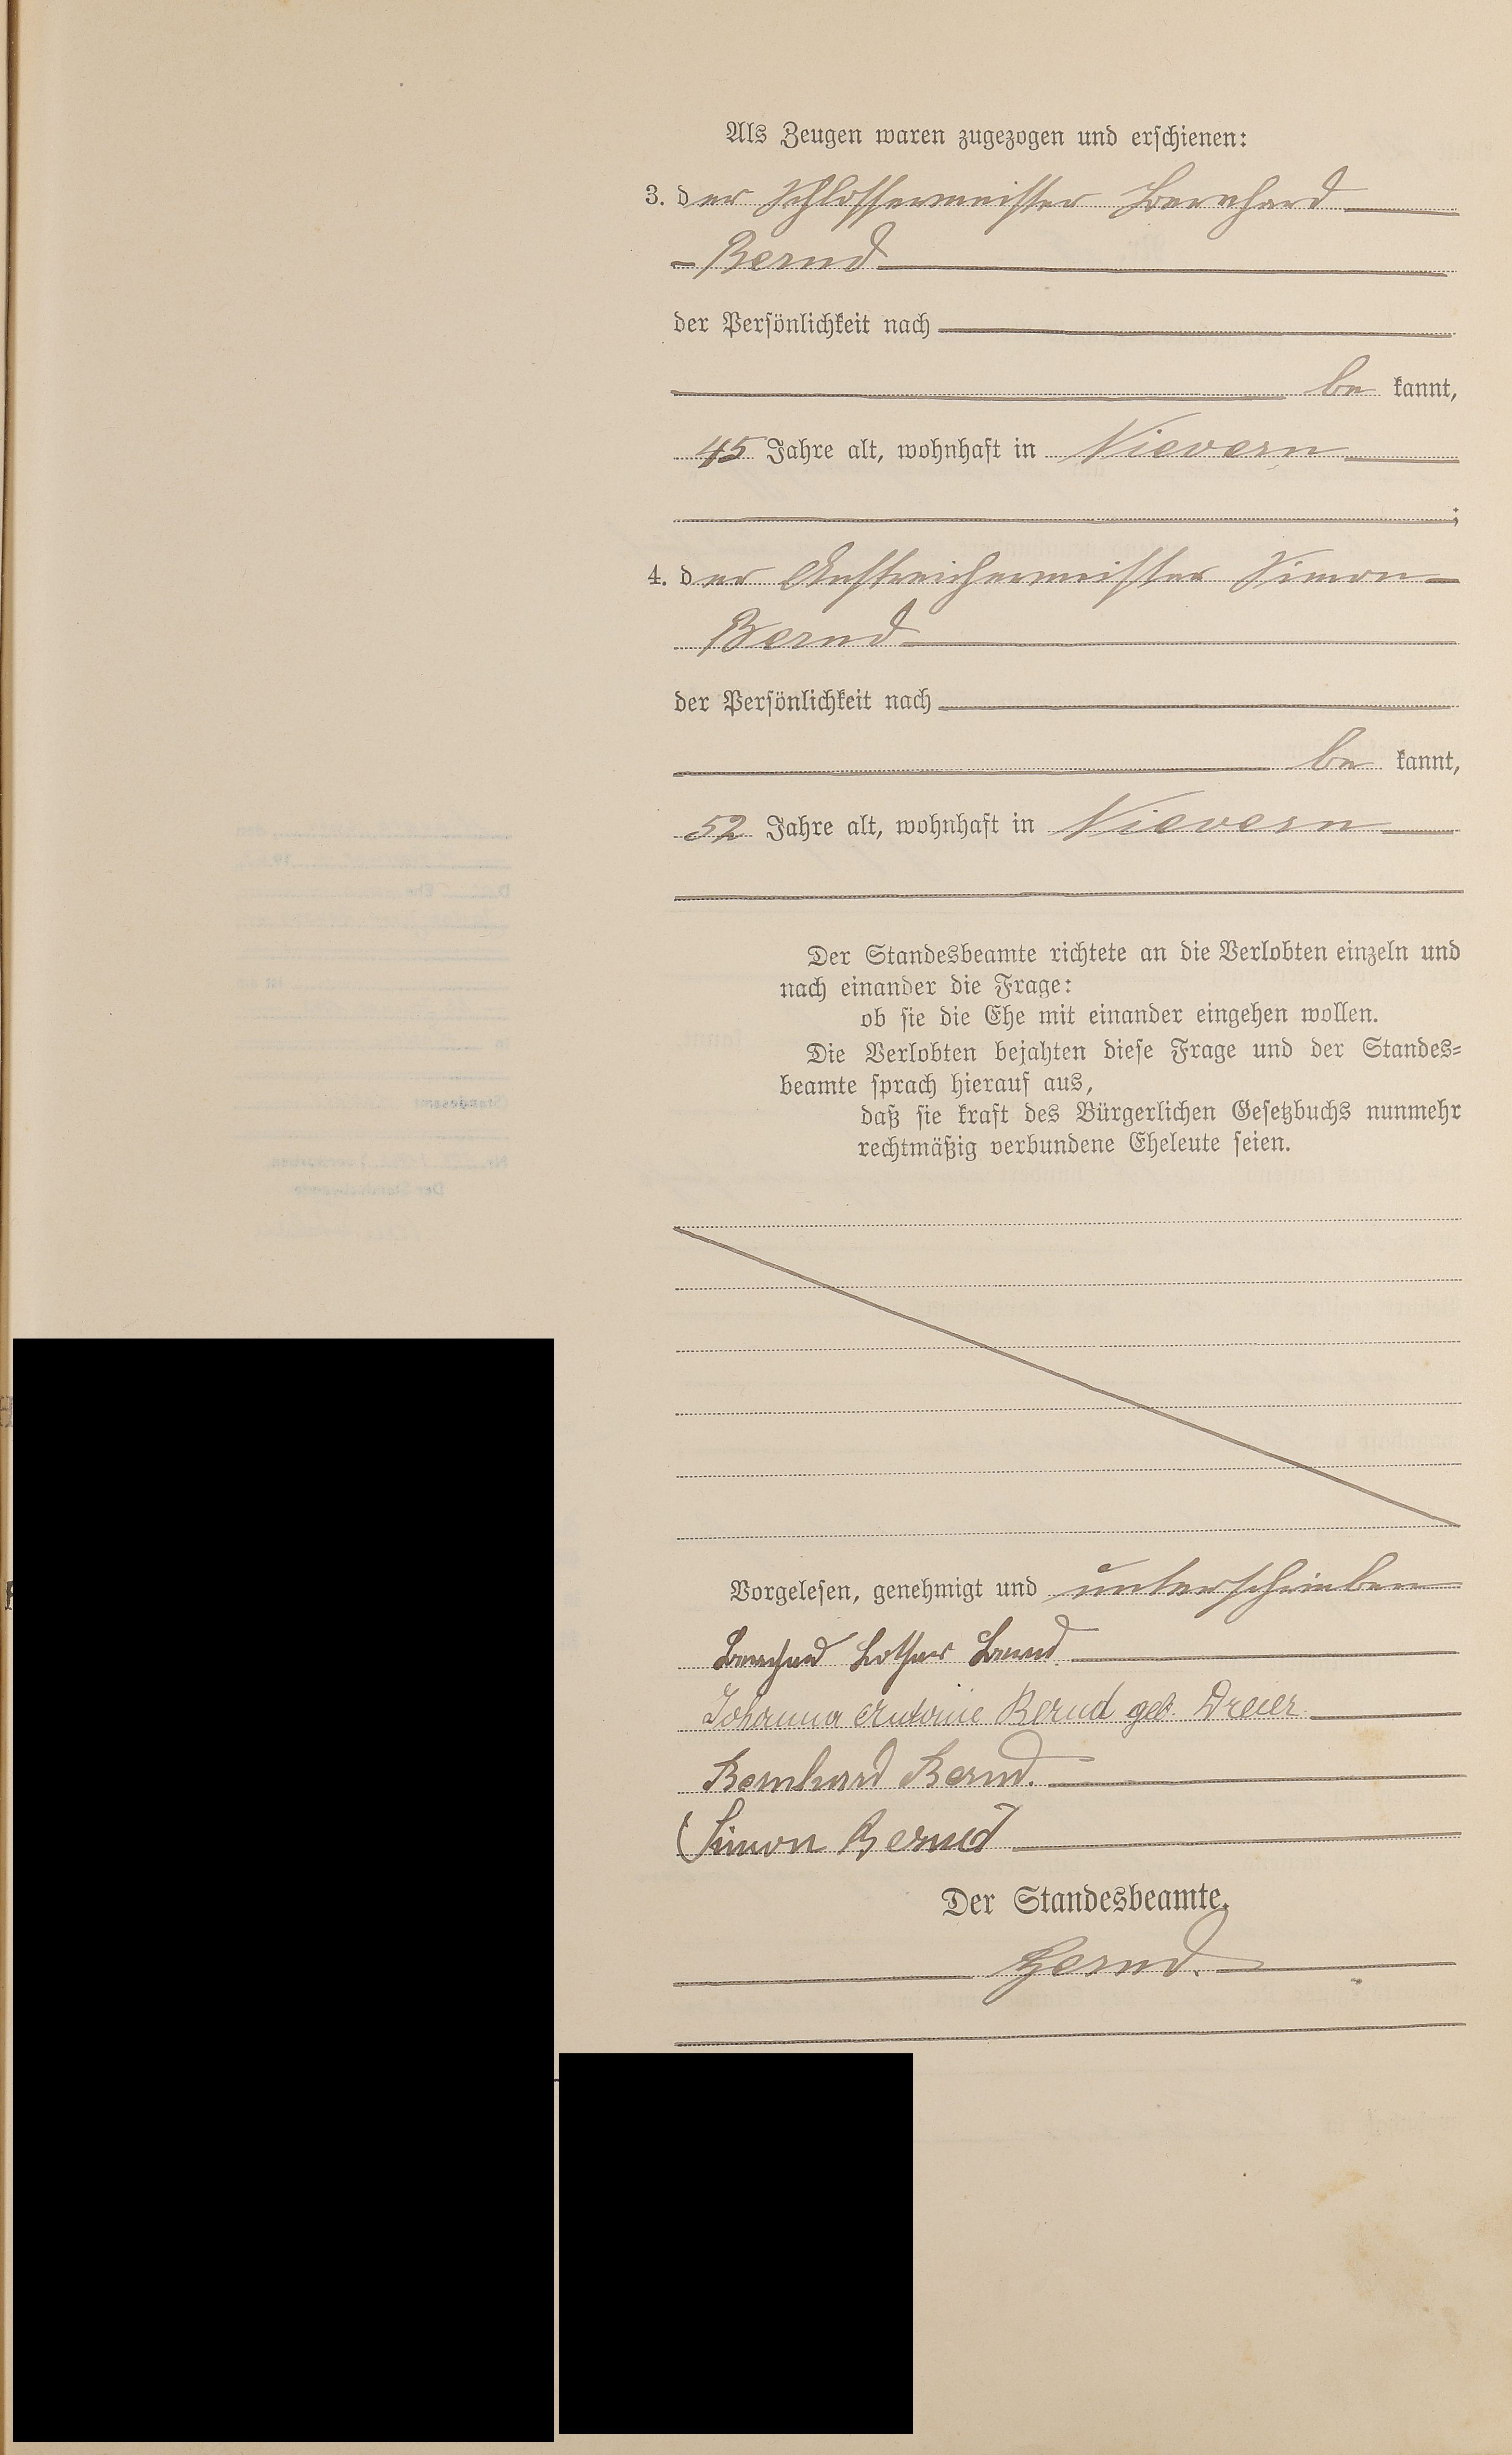 Als Zeugen waren zugezogen und erschienen:
3. der Schlossermeister Bernhard
Bernd
der Persönlichkeit nach
be kannt,
45 Jahre alt, wohnhaft in Nievern
;
4. der Anstreichermeister Simon
Bernd
der Persönlichkeit nach
be kannt,
52 Jahre alt, wohnhaft in Nievern
Der Standesbeamte richtete an die Verlobten einzeln und
nach einander die Frage:
ob sie die Ehe mit einander eingehen wollen.
Die Verlobten bejahten diese Frage und der Standes=
beamte sprach hierauf aus,
daß sie kraft des Bürgerlichen Gesetzbuchs nunmehr
rechtmäßig verbundene Eheleute seien.
Vorgelesen, genehmigt und unterschrieben
Bernhard Lothar Bernd.
Johanna Antonie Bernd geb. Dreier.
Bernhard Bernd.
Simon Bernd
Der Standesbeamte.
Bernd.